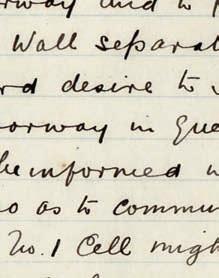 rway and to
Wall separat
rd desire to
oorway in Que
be informed
so as to commun
No. 1 Cell migh